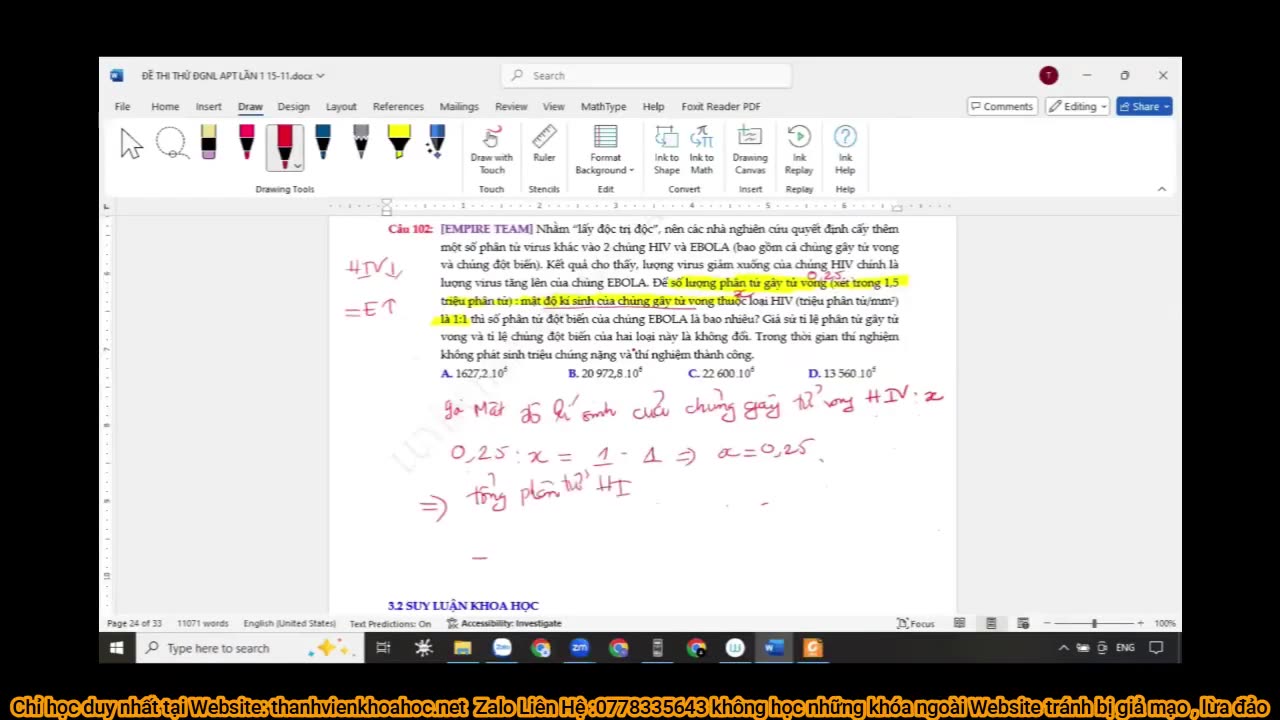 ĐỀ THI THỬ ĐGNL APT LẦN 1 15-11.docx
Search
T
File Home Insert Draw Design Layout References Mailings Review View MathType Help Foxit Reader PDF
Comments Editing Share
Draw with Touch
Ruler
Format Background
Ink to Shape
Ink to Math
Drawing Canvas
Ink Replay
Ink Help
Drawing Tools Touch Stencils Edit Convert Insert Replay Help
Câu 102: [EMPIRE TEAM] Nhằm “lấy độc trị độc”, nên các nhà nghiên cứu quyết định cấy thêm
một số phân tử virus khác vào 2 chủng HIV và EBOLA (bao gồm cả chủng gây tử vong
và chủng đột biến). Kết quả cho thấy, lượng virus giảm xuống của chủng HIV chính là
lượng virus tăng lên của chủng EBOLA. Để số lượng phân tử gây tử vong (xét trong 1,5
triệu phân tử) : mật độ kí sinh của chủng gây tử vong thuộc loại HIV (triệu phân tử/mm²)
là 1:1 thì số phân tử đột biến của chủng EBOLA là bao nhiêu? Giả sử tỉ lệ phân tử gây tử
vong và tỉ lệ chủng đột biến của hai loại này là không đổi. Trong thời gian thí nghiệm
không phát sinh triệu chứng nặng và thí nghiệm thành công.
A. 1627,2.10⁶ B. 20 972,8.10⁶ C. 22 600.10⁶ D. 13 560.10⁶
HIV↓
= E↑
0,25
x
gọi Mật độ kí sinh của chủng gây tử vong HIV: x
0,25 : x = 1 : 1 ⇒ x = 0,25
⇒ tổng phân tử HI
3.2 SUY LUẬN KHOA HỌC
Page 24 of 33 11071 words English (United States) Text Predictions: On Accessibility: Investigate Focus 100%
Type here to search
ENG
Chỉ học duy nhất tại Website: thanhvienkhoahoc.net Zalo Liên Hệ :0778335643 không học những khóa ngoài Website tránh bị giả mạo , lừa đảo